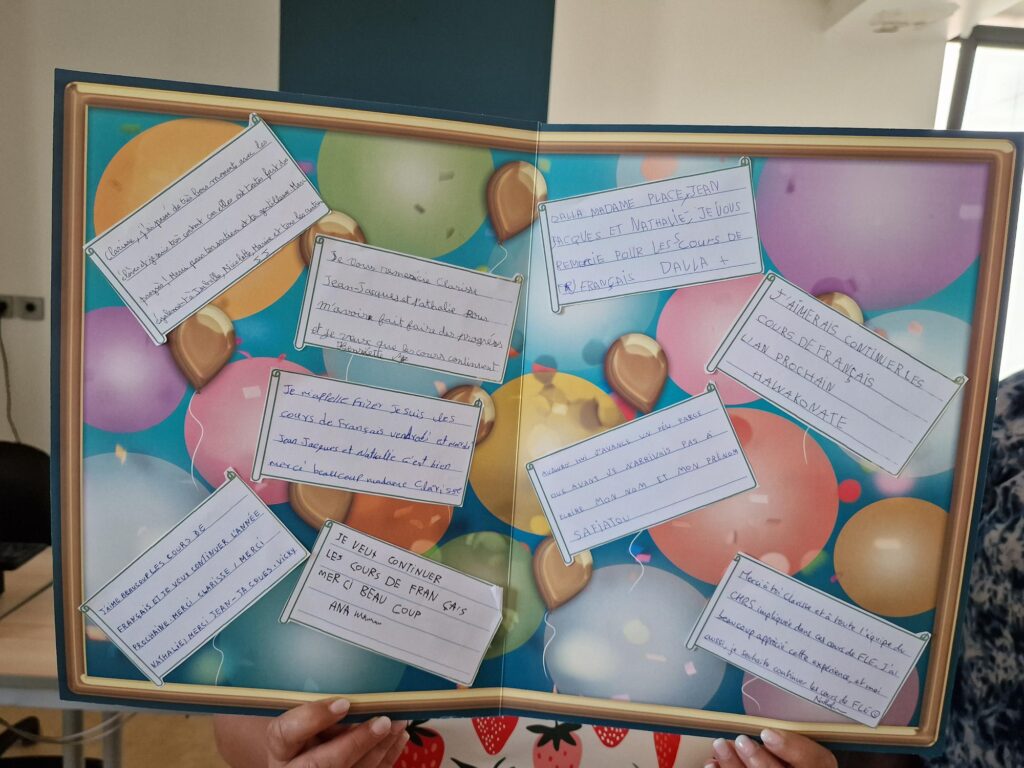 Clarisse, j'ai passé de très bons moments avec les
élèves et je suis très content car elles ont toutes fait des
progrès! Merci pour ton soutien et ta gentillesse. Merci
également à Isabelle, Nicolette, Mariam et tous les
Je Vous remercie Clarisse
Jean-Jacques et Nathalie pour
m'avoir fait faire des progrès
et je veux que les cours continuent
Henriette
Je m'appelle Frizer Je suis les
cours de Français vendredi et mardi
Jean Jacques et Nathalie C'est bien
merci beaucoup madame Clarisse
J'AIME BEAUCOUP LES COURS DE
FRANÇAIS ET JE VEUX CONTINUER L'ANNÉE
PROCHAINE. MERCI CLARISSE / MERCI
NATHALIE / MERCI JEAN-JACQUES. VICKY
JE VEUT CONTINUER
LES COURS DE FRAN ÇAIS
MERCI BEAU COUP
ANA
DALLA MADAME PLACE, JEAN
JACQUES ET NATHALIE, JE VOUS
REMERCIE POUR LES COURS DE
FRANÇAIS DALLA +
J'AIMERAIS CONTINUER LES
COURS DE FRANÇAIS
L'AN PROCHAIN
HAWAKONATE
AUJOURD'HUI J'AVANCE UN PEU PARCE
QUE AVANT JE N'ARRIVAIS PAS À
ECRIRE MON NOM ET MON PRÉNOM
SAFIATOU
Merci à toi Clarisse et à toute l'équipe du
CHRS impliquée dans ces cours de FLE. J'ai
beaucoup apprécié cette expérience, et moi
aussi, je souhaite continuer les cours de FLE